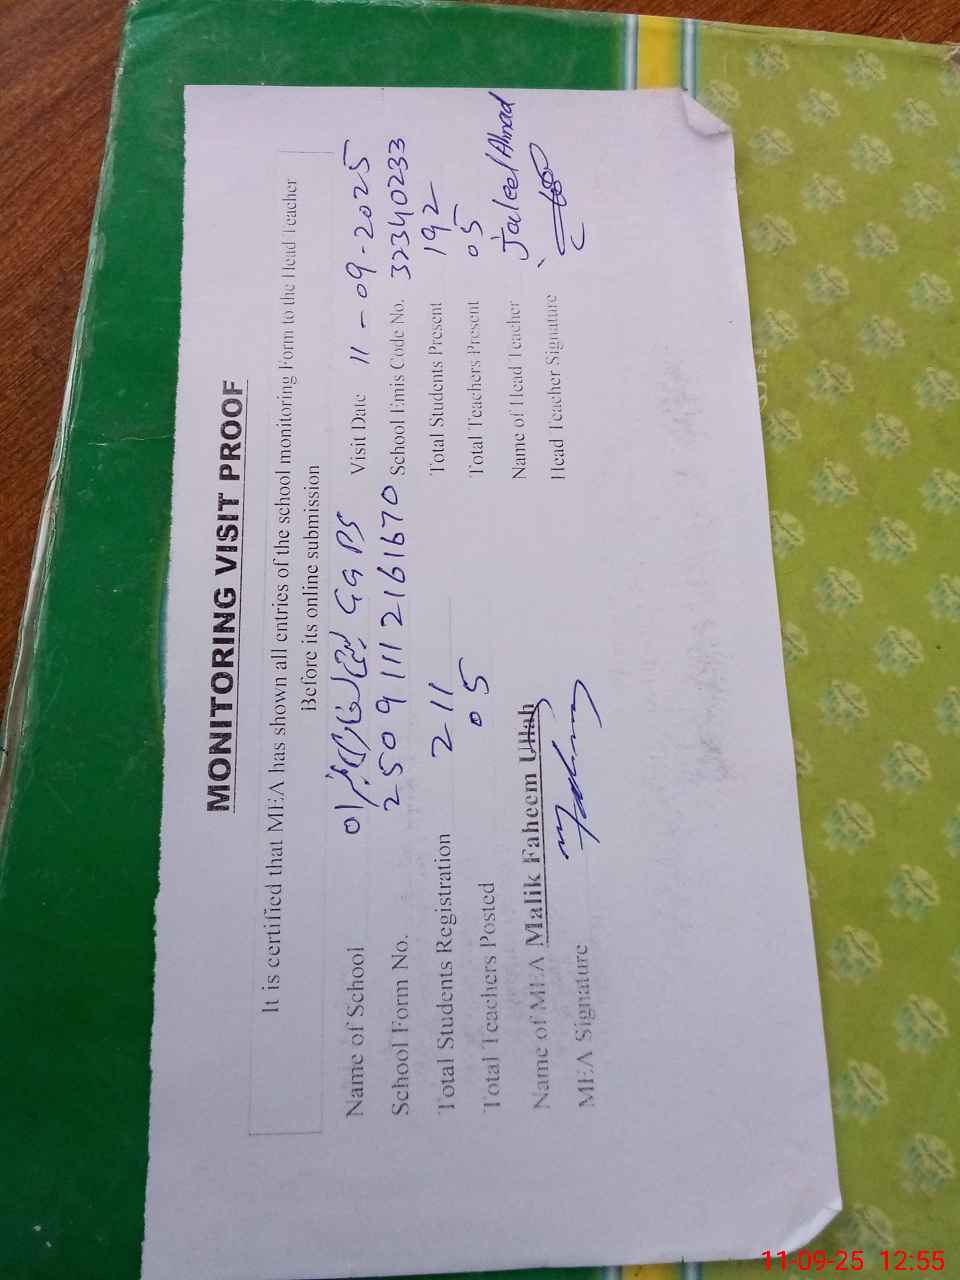 MONITORING VISIT PROOF
It is certified that MEA has shown all entries of the school monitoring Form to the Head Teacher
Before its online submission
Name of School GGPS Visit Date 11-09-2025
School Form No. 2509111216167 0 School Emis Code No. 32340233
Total Students Registration 211 Total Students Present 192
Total Teachers Posted 05 Total Teachers Present 05
Name of MEA Malik Faheem Ullah Name of Head Teacher Jaleel Ahmad
MEA Signature Head Teacher Signature
11-09-25 12:55